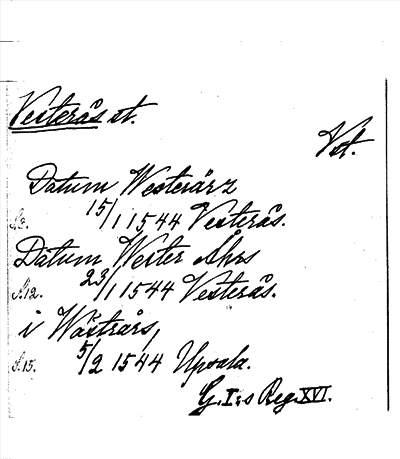 Vesterås st.
Vst.
Datum Westerårz
S.2. 15/1 1544 Vesterås.
Datum Wester Ahrs
S.12. 23/1 1544 Vesterås.
i Wästrårs,
S.15. 5/2 1544 Upsala.
G.I:s Reg. XVI.